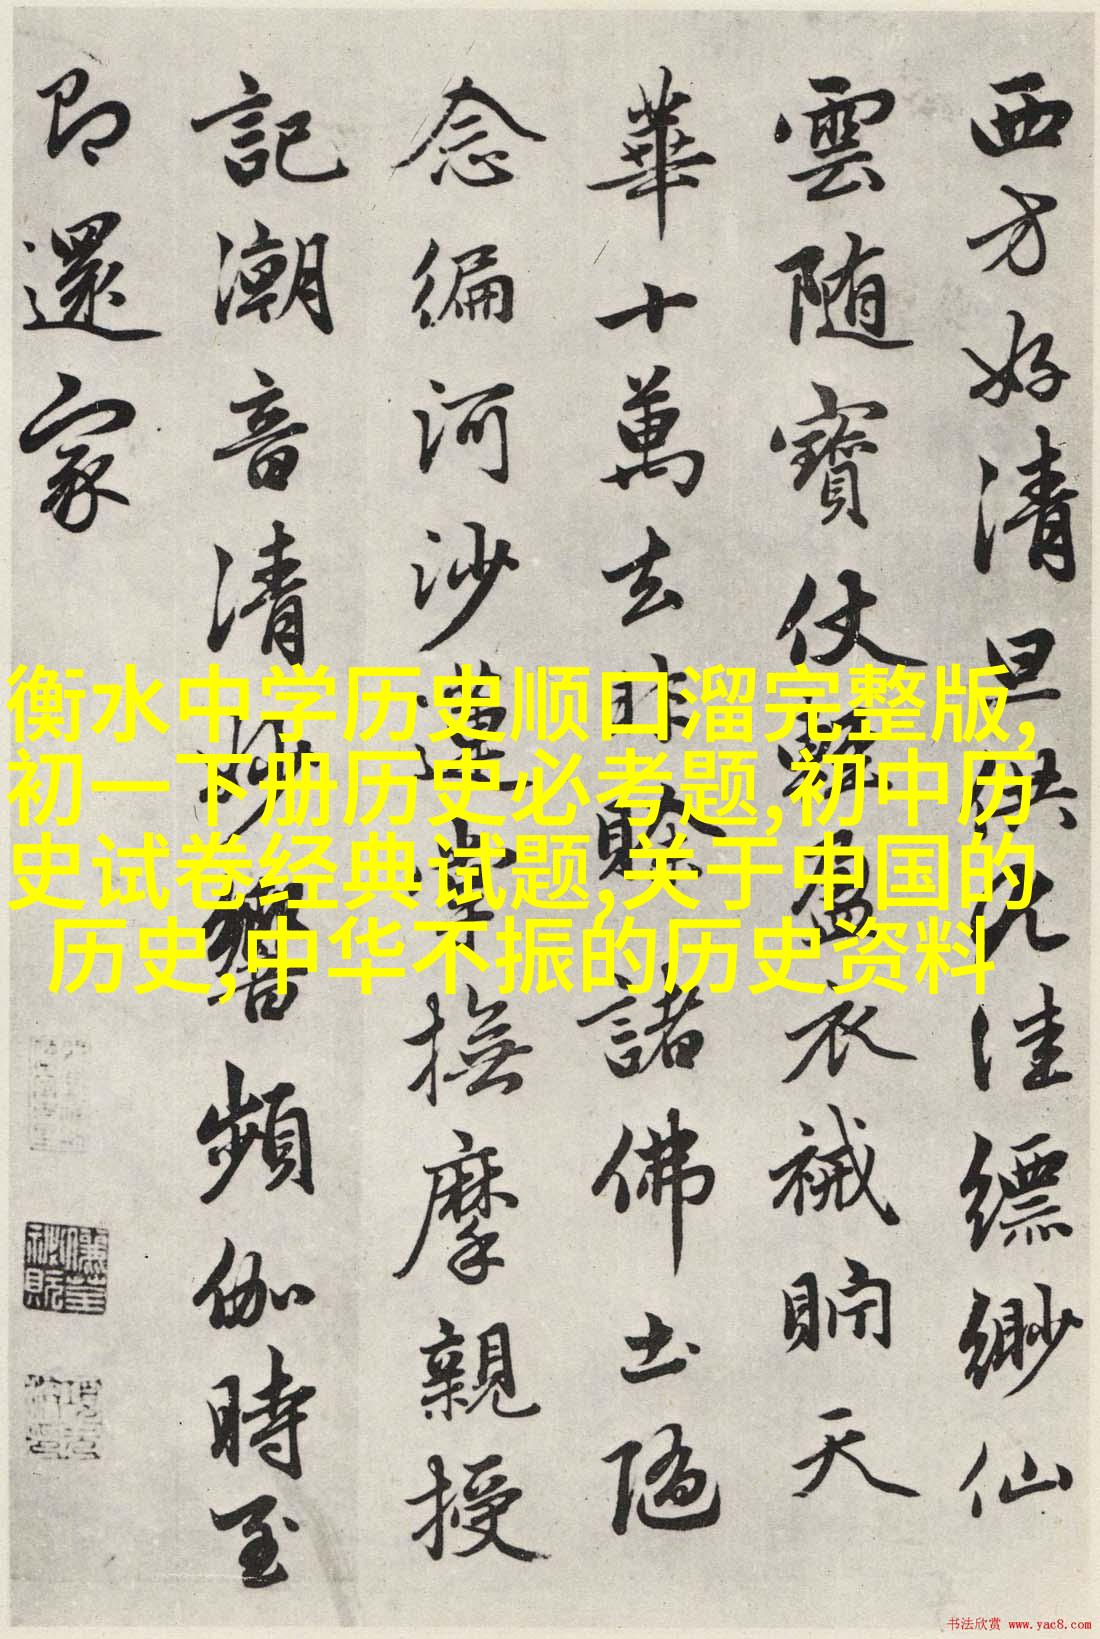 西方好清旦供尤佳縹緲仙
雲随寶仗輕盈衣祴貯天
華十萬去非賒諸佛土隨
念徧河沙蓮掌撫摩親授
記潮音清妙響頻伽時至
即還家
衡水中学历史顺口溜完整版,
初一下册历史必考题,初中历
史试卷经典试题,关于中国的
历史,中华不振的历史资料
书法欣赏 www.yac8.com